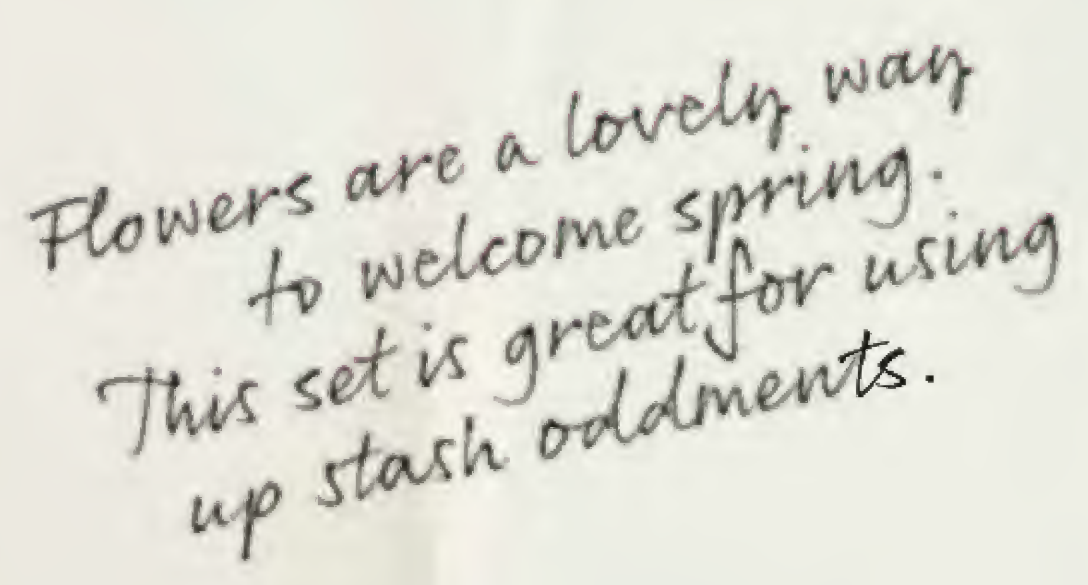 Flowers are a lovely way
to welcome spring.
This set is great for using
up stash oddments.